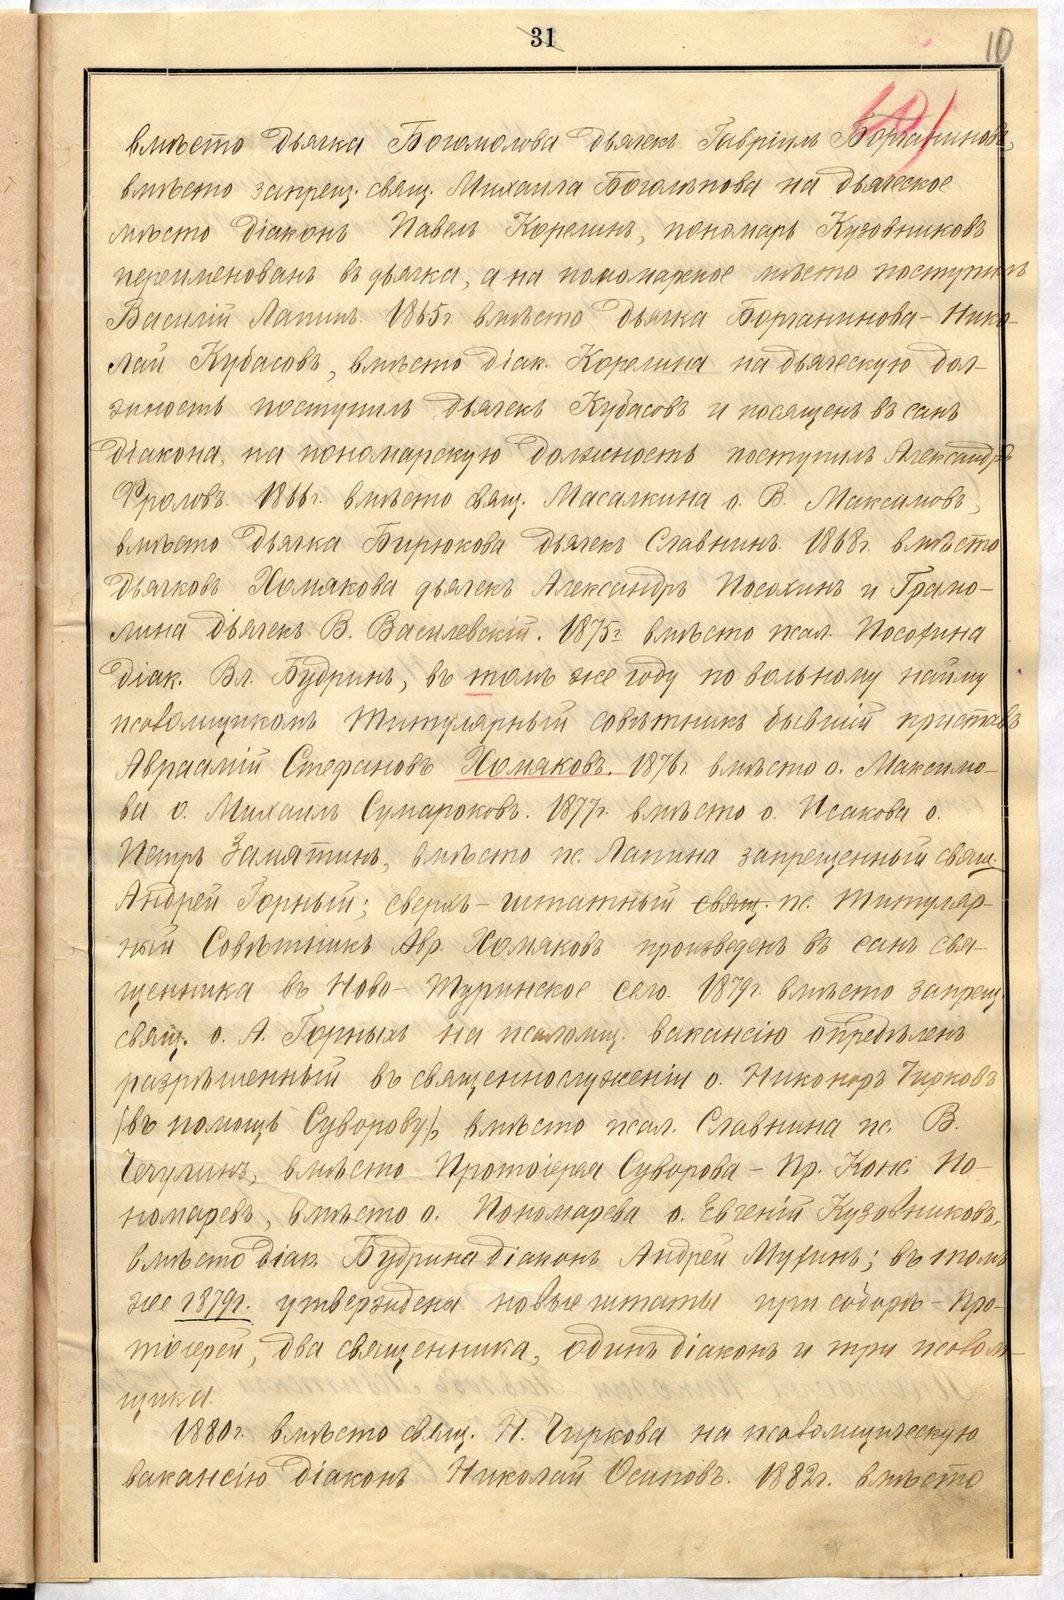 31
10
вмѣсто дьячка Богомолова дьячекъ Гавріилъ Борчаниновъ,
вмѣсто запрещ. свящ. Михаила Боголѣпова на дьяческое
мѣсто діаконъ Павелъ Корелинъ, пономарь Кузовниковъ
переименованъ въ дьячка, а на пономарское мѣсто поступилъ
Василій Лапинъ. 1865г. вмѣсто дьячка Борчанинова - Нико-
лай Кубасовъ, вмѣсто діак. Корелина на дьяческую дол-
жность поступилъ дьячекъ Кубасовъ и посвященъ въ санъ
діакона, на пономарскую должность поступилъ Александръ
Фроловъ. 1866г. вмѣсто свящ. Масалкина о. В. Максимовъ,
вмѣсто дьячка Бирюкова дьячекъ Славнинъ. 1868г. вмѣсто
дьячковъ Хомякова дьячекъ Александръ Посохинъ и Грамо-
лина дьячекъ В. Василевскій. 1875г. вмѣсто псал. Посохина
діак. Вл. Будринъ, въ томъ же году по вольному найму
псаломщикомъ Титулярный совѣтникъ бывшій приставъ
Авраамій Стефановъ Хомяковъ. 1876г. вмѣсто о. Максимо-
ва о. Михаилъ Сумароковъ. 1877г. вмѣсто о. Исакова о.
Петръ Замятинъ, вмѣсто пс. Лапина запрещенный свящ.
Андрей Горный; сверхъ-штатный свящ. пс. Титуляр-
ный Совѣтникъ Авр. Хомяковъ произведенъ въ санъ свя-
щенника въ Ново-Туринское село. 1879г. вмѣсто запрещ.
свящ. о. А. Горныхъ на псаломщ. вакансію опредѣленъ
разрѣшенный въ священнослуженіи о. Никоноръ Чирковъ
(въ помощь Суворову), вмѣсто псал. Славнина пс. В.
Чечулинъ, вмѣсто Протоіерея Суворова - Пр. Конс. По-
номаревъ, вмѣсто о. Пономарева о. Евгеній Кузовниковъ,
вмѣсто діак. Будрина діаконъ Андрей Мухинъ; въ томъ
же 1879г. утверждены новые штаты при соборѣ - Про-
тоіерей, два священника, одинъ діаконъ и три псалом-
щика.
1880г. вмѣсто свящ. Н. Чиркова на псаломщическую
вакансію діаконъ Николай Осиповъ. 1882г. вмѣсто